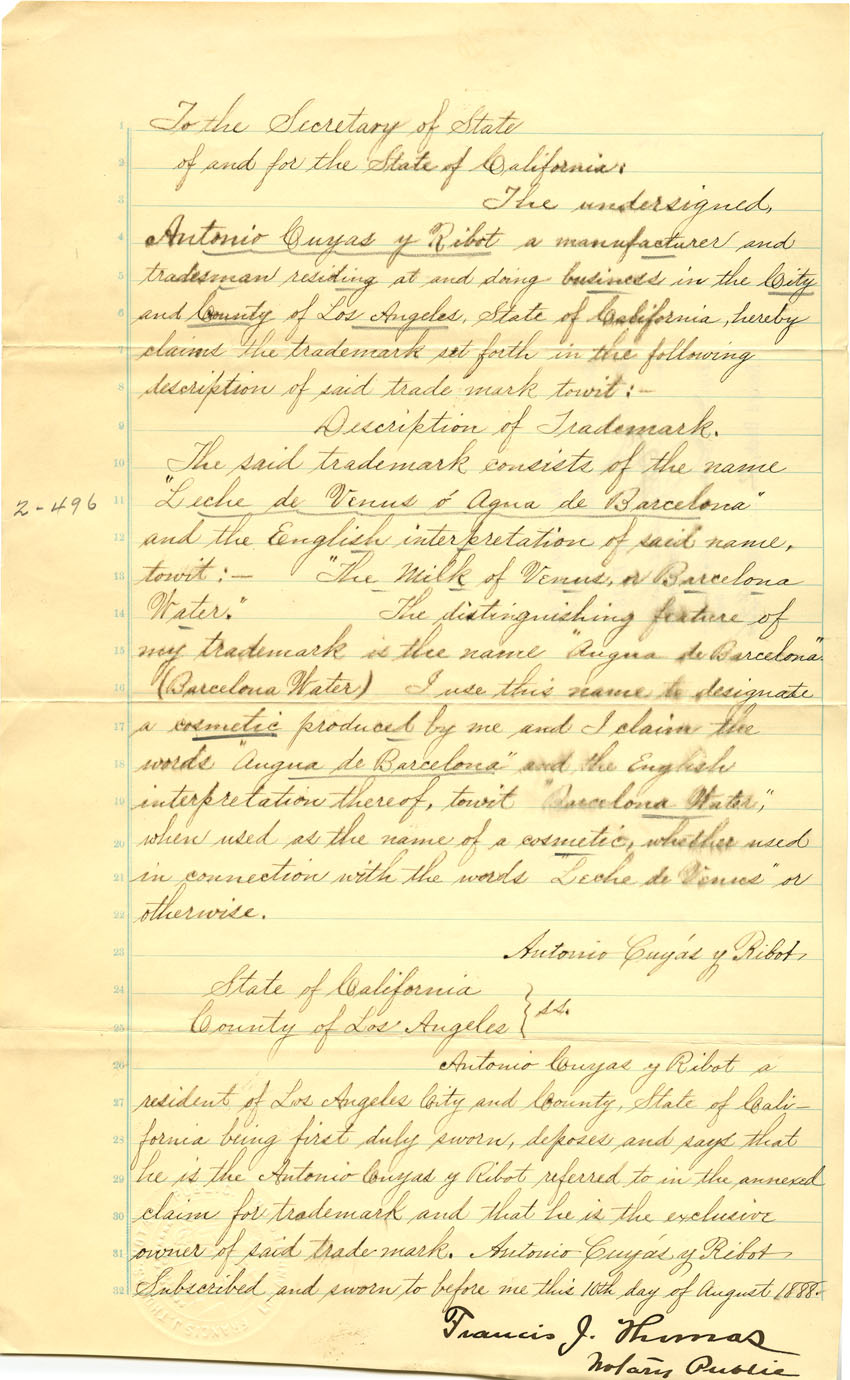 1 To the Secretary of State
2 of and for the State of California:
3 The undersigned,
4 Antonio Cuyas y Ribot a manufacturer and
5 tradesman residing at and doing business in the City
6 and County of Los Angeles, State of California, hereby
7 claims the trademark set forth in the following
8 description of said trade mark towit:-
9 Description of Trademark.
10 The said trademark consists of the name
2-496
11 "Leche de Venus ó Agua de Barcelona"
12 and the English interpretation of said name,
13 towit:- "The Milk of Venus, or Barcelona
14 Water." The distinguishing feature of
15 my trademark is the name "Augua de Barcelona"
16 (Barcelona Water) I use this name to designate
17 a cosmetic produced by me and I claim the
18 words "Augua de Barcelona" and the English
19 interpretation thereof, towit "Barcelona Water,"
20 when used as the name of a cosmetic, whether used
21 in connection with the words "Leche de Venus" or
22 otherwise.
23 Antonio Cuyás y Ribot
24 State of California
25 County of Los Angeles } ss.
26 Antonio Cuyas y Ribot a
27 resident of Los Angeles City and County, State of Cali-
28 fornia being first duly sworn, deposes and says that
29 he is the Antonio Cuyas y Ribot referred to in the annexed
30 claim for trademark and that he is the exclusive
31 owner of said trade mark. Antonio Cuyás y Ribot
32 Subscribed and sworn to before me this 10th day of August 1888.
Francis J. Thomas
Notary Public